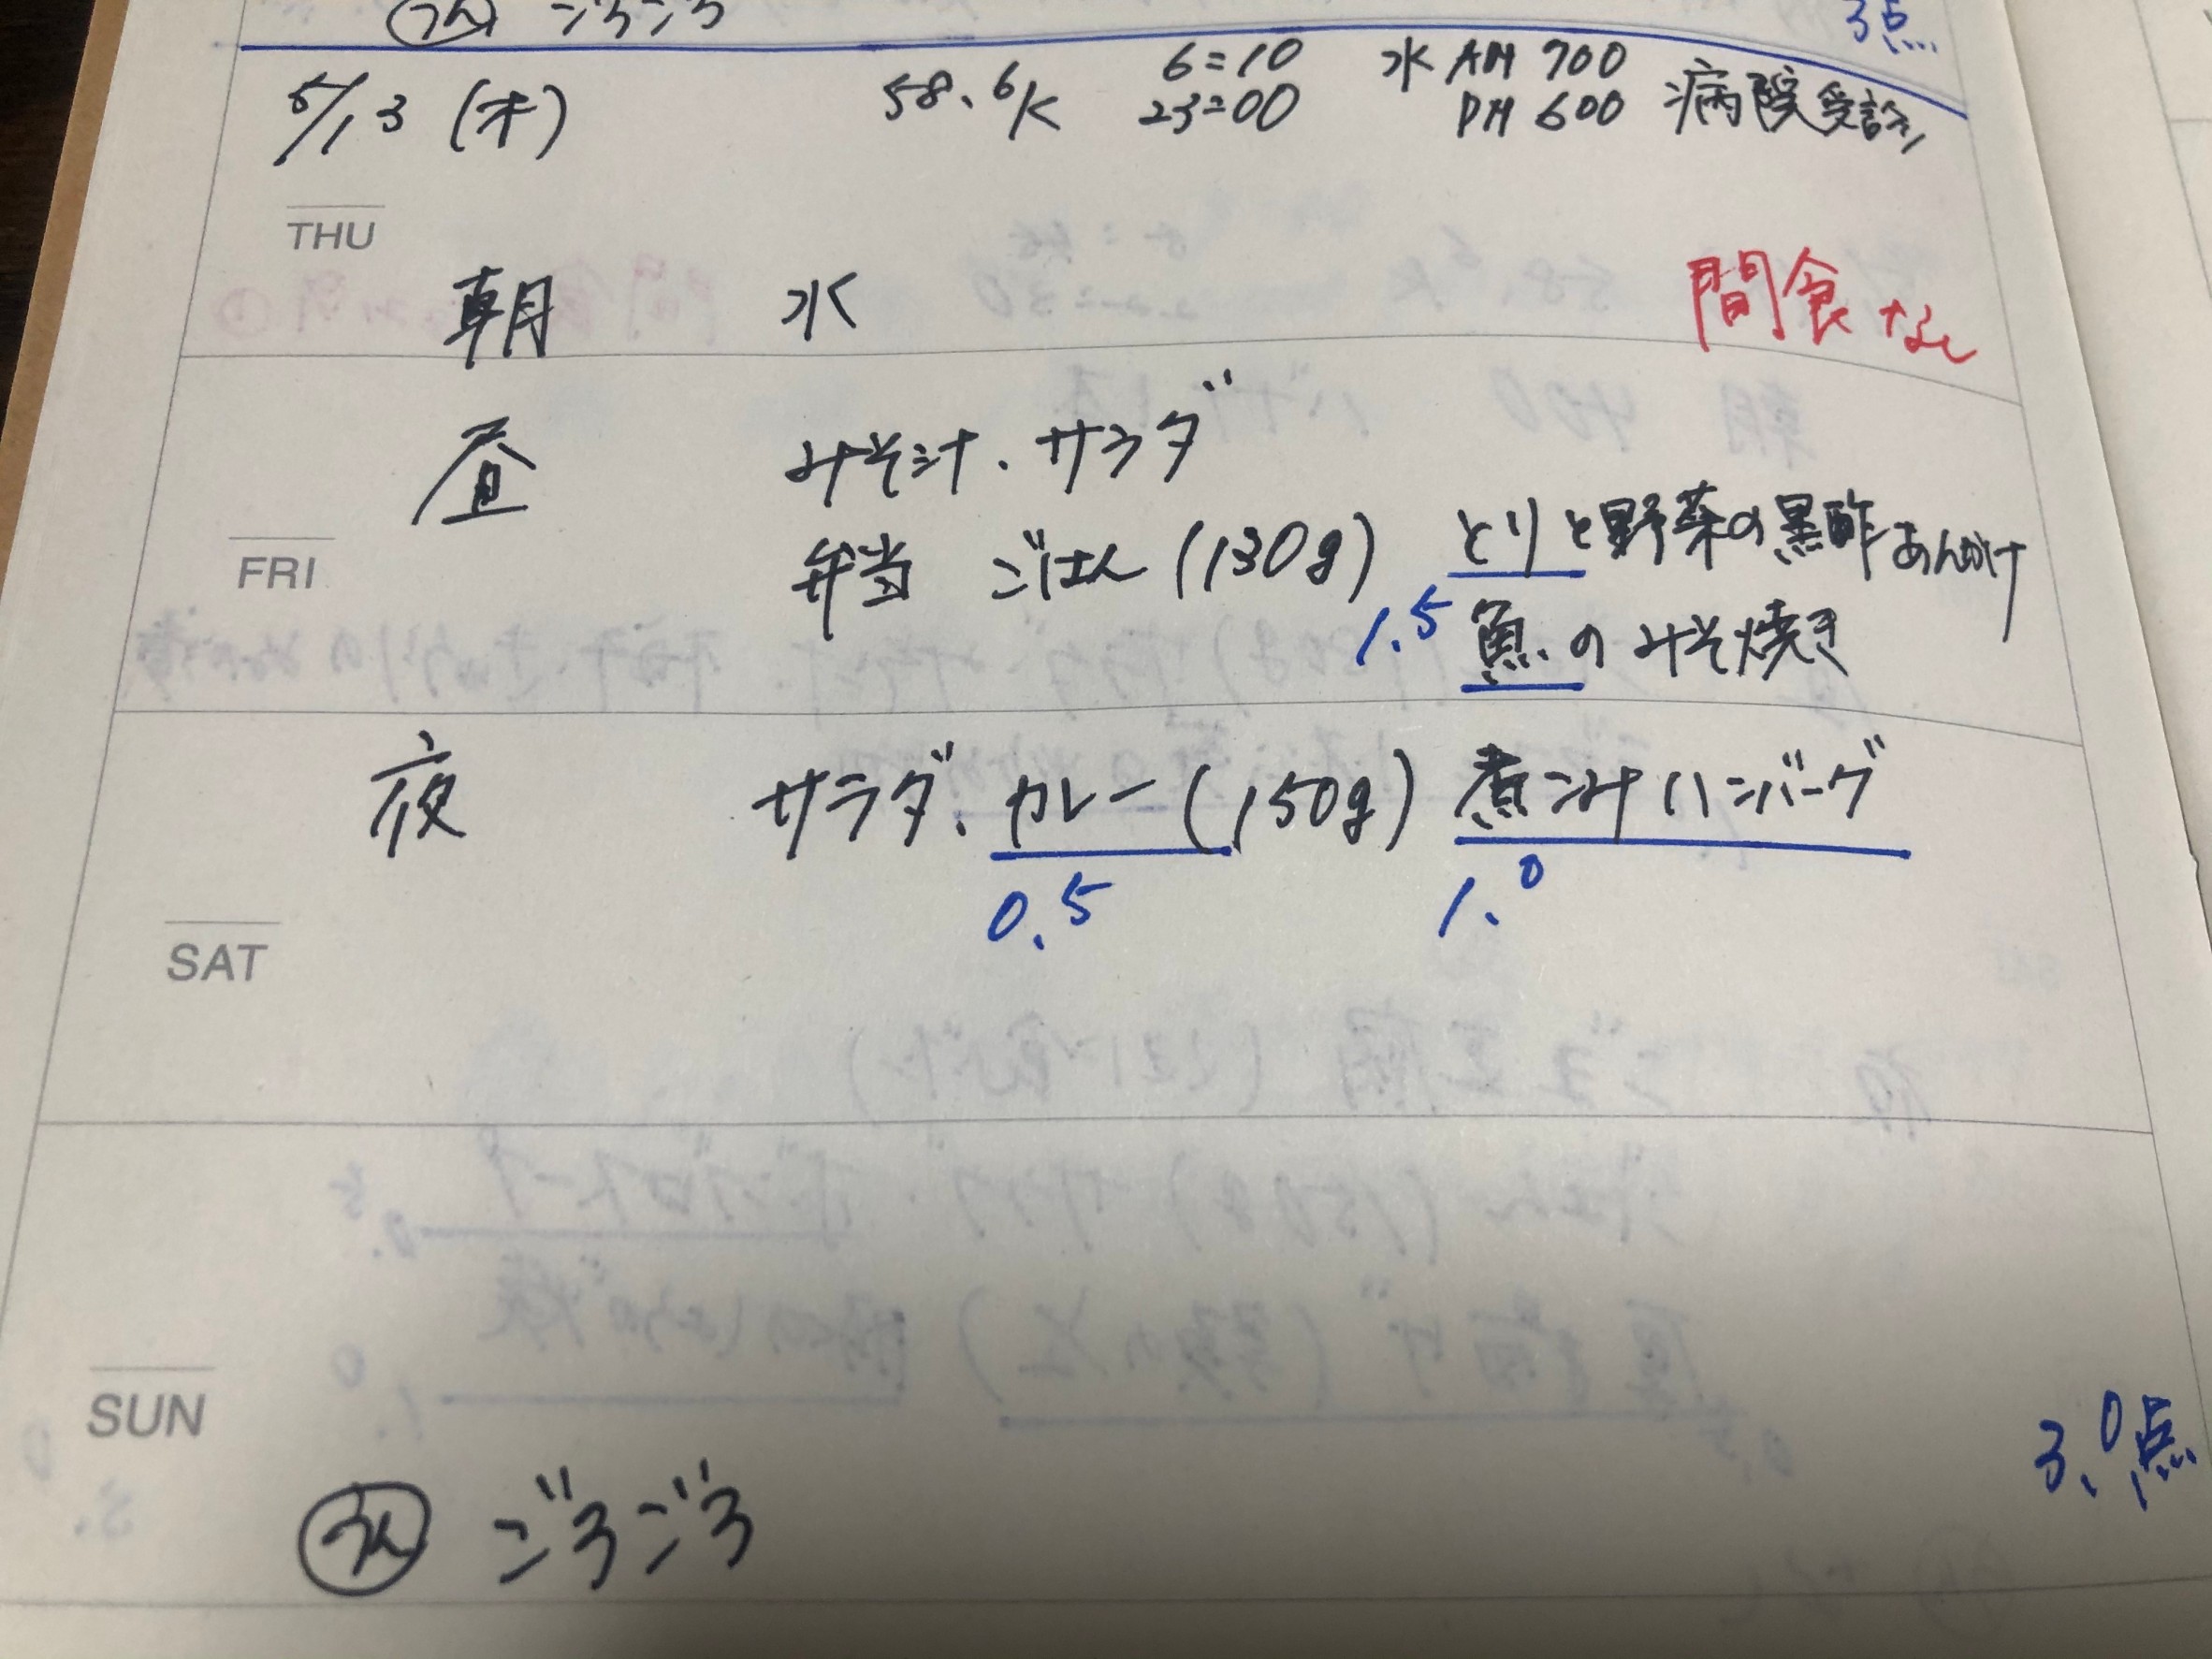 ごろごろ
3点
5/13 (木) 58.6K 6:10 水 AM 700
23:00 PM 600 病院受診
THU
朝 水 間食なし
昼 みそ汁、サラダ
弁当 ごはん (130g) とりと野菜の黒酢あんかけ
FRI
1.5 魚のみそ焼き
夜 サラダ、カレー (150g) 煮こみハンバーグ
0.5 1.0
SAT
SUN
3.0点
ごろごろ